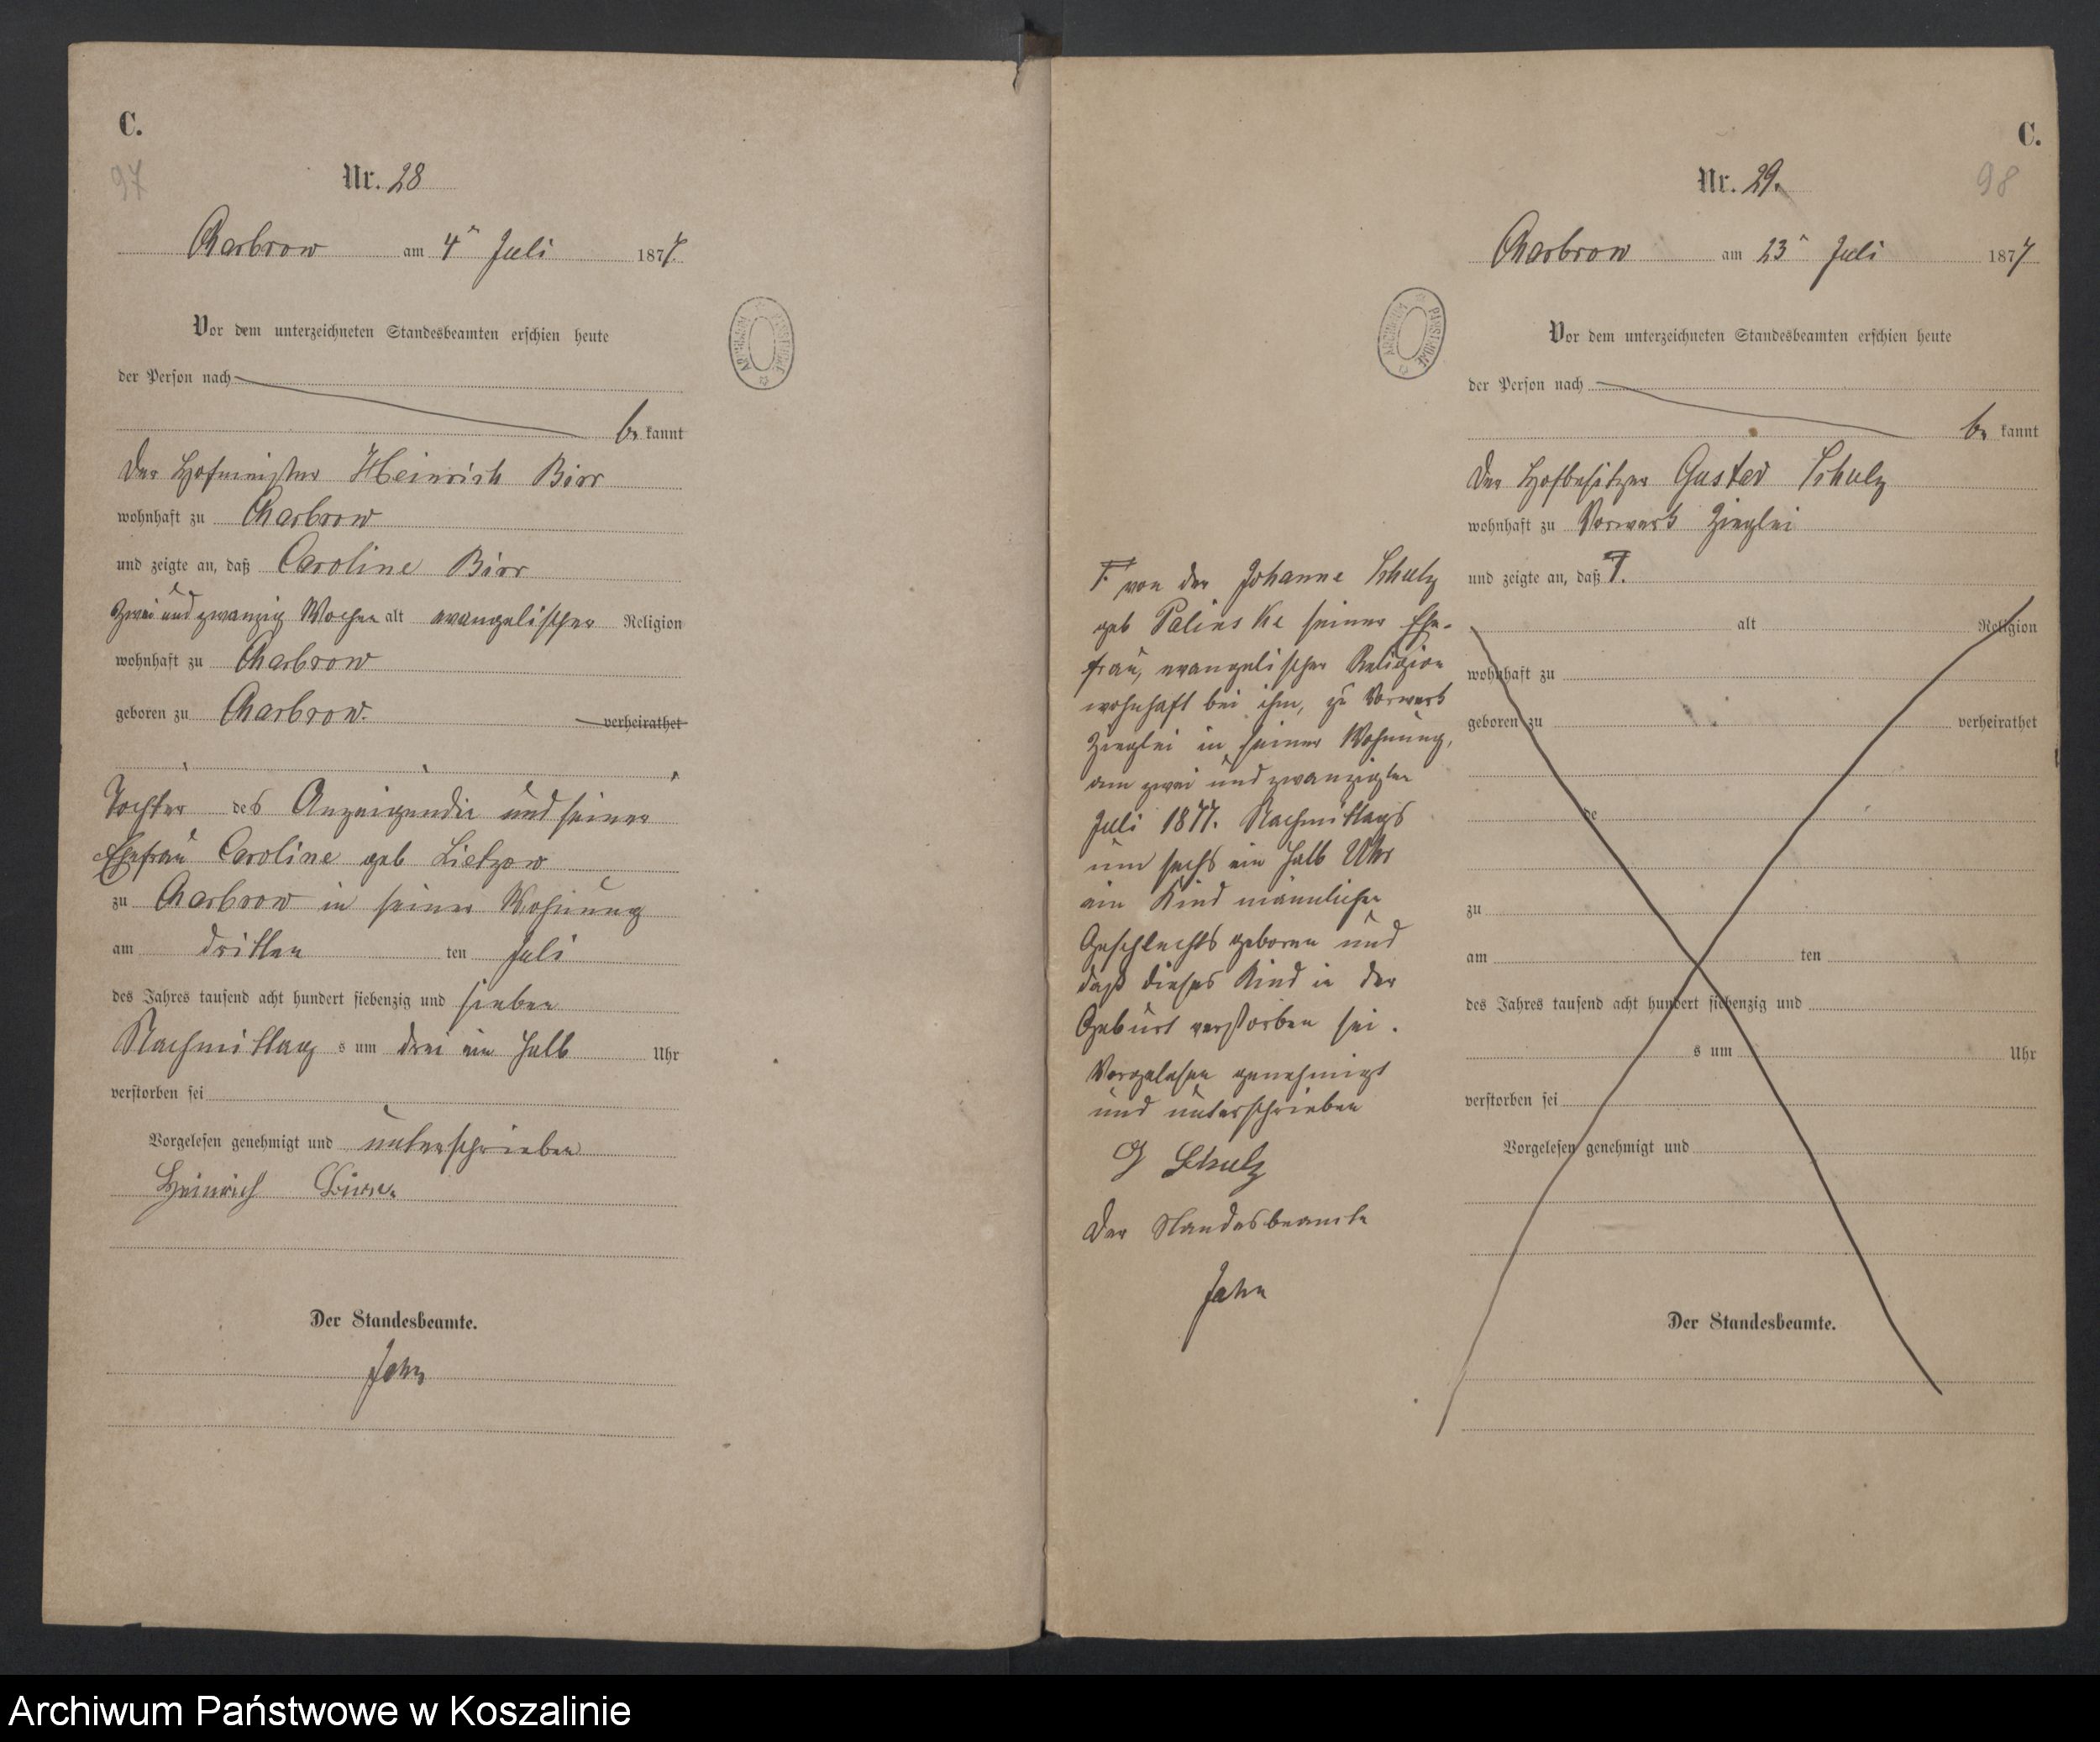 C.
97
Nr. 28
Charbrow am 4ten Juli 1877.
Vor dem unterzeichneten Standesbeamten erschien heute
der Person nach
be kannt
Der Hofmeister Heinrich Birr
wohnhaft zu Charbrow
und zeigte an, daß Caroline Birr
zwei und zwanzig Wochen alt evangelischer Religion
wohnhaft zu Charbrow
geboren zu Charbrow. verheirathet
Tochter des Anzeigenden und seiner
Ehefrau Caroline geb Lietzow
zu Charbrow in seiner Wohnung
am dritten ten Juli
des Jahres tausend acht hundert siebenzig und sieben
Nachmittag s um drei ein halb Uhr
verstorben sei
Vorgelesen genehmigt und unterschrieben
Heinrich
Der Standesbeamte.
Jahn
ARCHIWUM PAŃSTWOWE
C.
98
Nr. 29.
Charbrow am 23ten Juli 1877
ARCHIWUM PAŃSTWOWE
Vor dem unterzeichneten Standesbeamten erschien heute
der Person nach
be kannt
Der Hofbesitzer Gustav Schulz
wohnhaft zu Vorwerk Zieglei
und zeigte an, daß F.
alt Religion
wohnhaft zu
geboren zu verheirathet
de
zu
am ten
des Jahres tausend acht hundert siebenzig und
s um Uhr
verstorben sei
Vorgelesen genehmigt und
Der Standesbeamte.
F. von der Johanne Schulz
geb Palinske seiner Ehe-
frau, evangelischer Religion
wohnhaft bei ihm, zu Vorwerk
Zieglei in seiner Wohnung,
am zwei und zwanzigten
Juli 1877. Nachmittags
um sechs ein halb Uhr
ein Kind männlichen
Geschlechts geboren und
daß dieses Kind in der
Geburt verstorben sei.
Vorgelesen genehmigt
und unterschrieben
G Schulz
Der Standesbeamte
Jahn
Archiwum Państwowe w Koszalinie